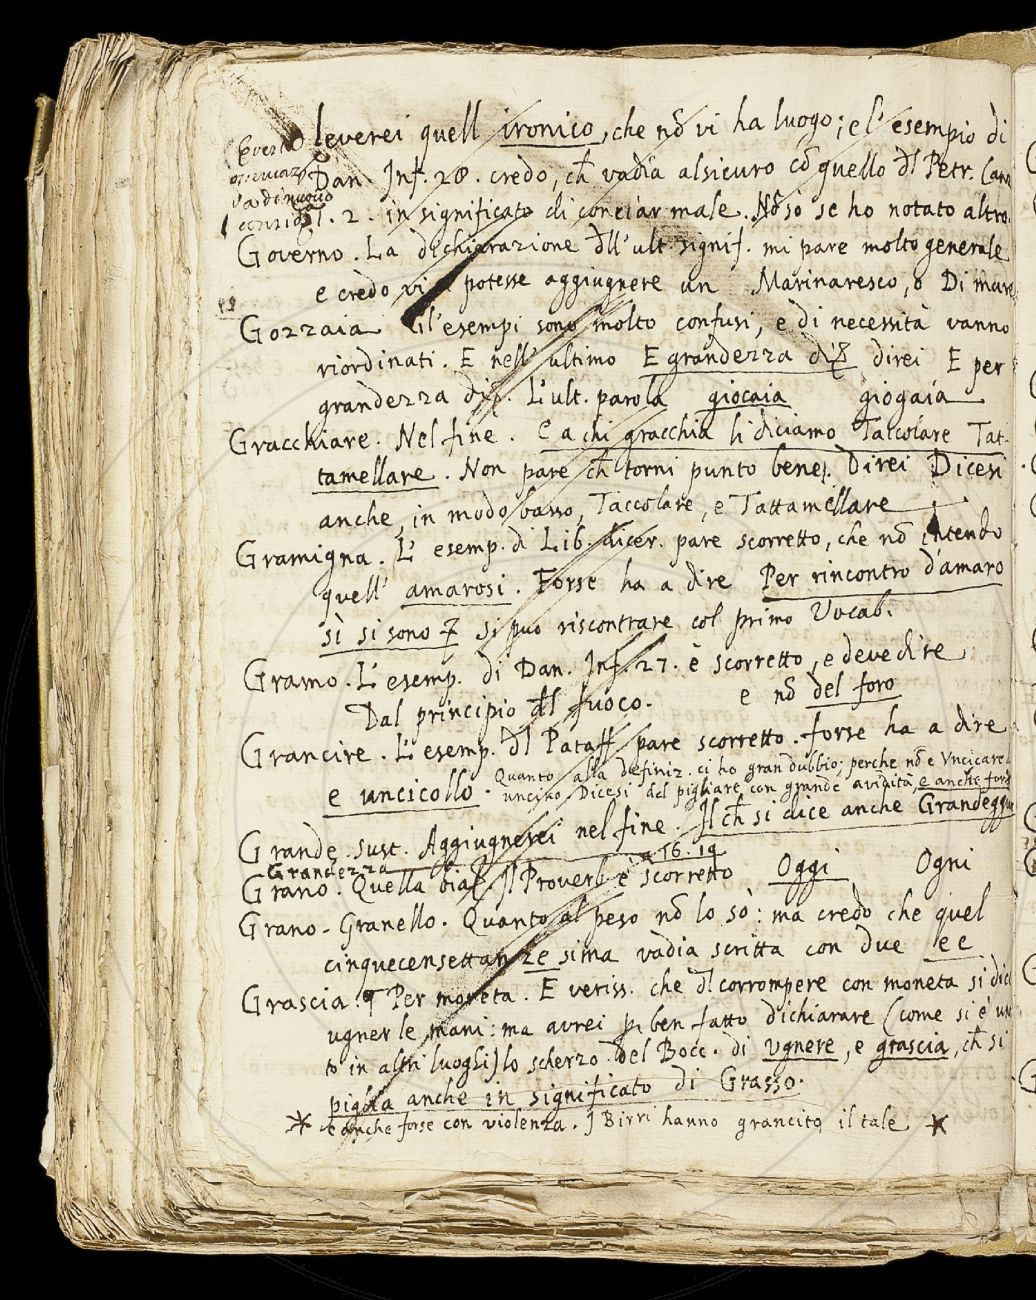 leverei quell ironico, che nō vi ha luogo; e l'esempio di
Dan. Inf. 28. credo, ch̄ vadia alsicuro cō quello d̄l Petr. Canz
1. 2. in significato di conciar male. Nō so se ho notato altro.
va di nuovo
Governo. La dichiarazione d̄ll'ult. signif. mi pare molto generale
e credo vi potesse aggiugnere un Marinaresco, o Di mare
Gozzaia Gl'esempi sono molto confusi, e di necessità vanno
riordinati. E nell'ultimo E grandezza di direi E per
grandezza di. L'ult. parola giocaia giogaia
Gracchiare. Nel fine. E a chi gracchia li diciamo Taccolare Tat-
tamellare. Non pare ch̄ torni punto bene. Direi Dicesi
anche, in modo basso, Taccolare, e Tattamellare
Gramigna. L'esemp. di Lib. dicer. pare scorretto, che nō intendo
quell' amarosi. Forse ha a dire Per rincontro d'amaro
sì si sono Si può riscontrare col primo Vocab.
Gramo. L'esemp. di Dan. Inf. 27. è scorretto, e deve dire
Dal principio d̄l fuoco. e nō del foro
Grancire. L'esemp. d̄l Pataff. pare scorretto. forse ha a dire
e uncicollo. Quanto alla definiz. ci ho gran dubbio; perche nō è Vncicare
uncino. Dicesi del pigliare con grande avidità, e anche forse
Grande. sust. Aggiugnerei nel fine. Il ch̄ si dice anche Grandeggia
Grandezza a 16. 19
Grano. Quella Il Proverb. è scorretto Oggi Ogni
Grano - Granello. Quanto al peso nō lo so: ma credo che quel
cinquecensettanzesima vadia scritta con due e e
Grascia. ¶ Per moneta. E veriss. che d̄l corrompere con moneta si dice
ugner le mani: ma avrei ben fatto dichiarare (come si è un
to in altri luoghi) lo scherzo del Bocc. di vgnere, e grascia, ch̄ si
piglia anche in significato di Grasso.
* e anche forse con violenza. I Birri hanno grancito il tale *